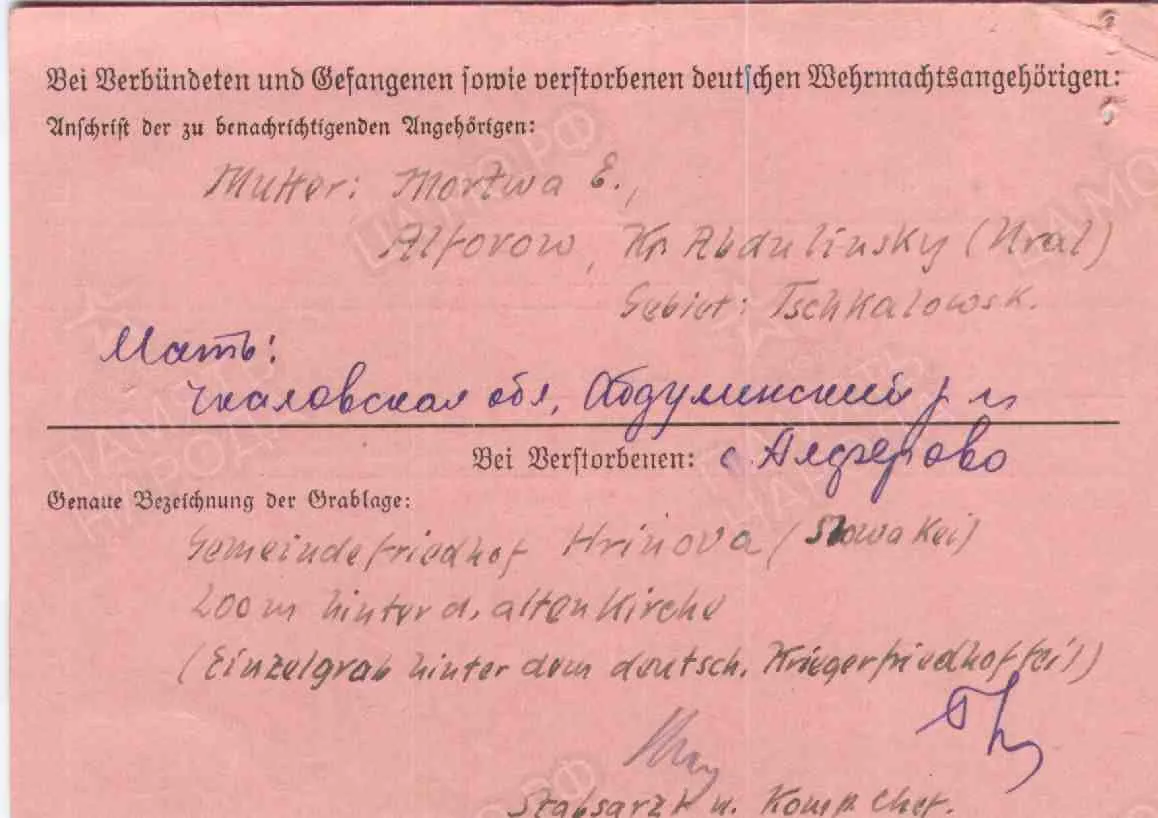 Bei Verbündeten und Gefangenen sowie verstorbenen deutschen Wehrmachtsangehörigen:
Anschrift der zu benachrichtigenden Angehörigen:
Mutter: Mortwa E.,
Alforow, Kr. Abdulinsky (Ural)
Gebiet: Tschkalowsk.
Мать:
Чкаловская обл, Абдулинский р-н
Bei Verstorbenen: с. Алферово
Genaue Bezeichnung der Grablage:
Gemeindefriedhof Hrinova (Slowakei)
200 m hinter d. alten Kirche
(Einzelgrab hinter dem deutsch. Kriegerfriedhofteil)
Stabsarzt u. Komp. Chef.
ПАМЯТЬ НАРОДА
ЦАМО РФ